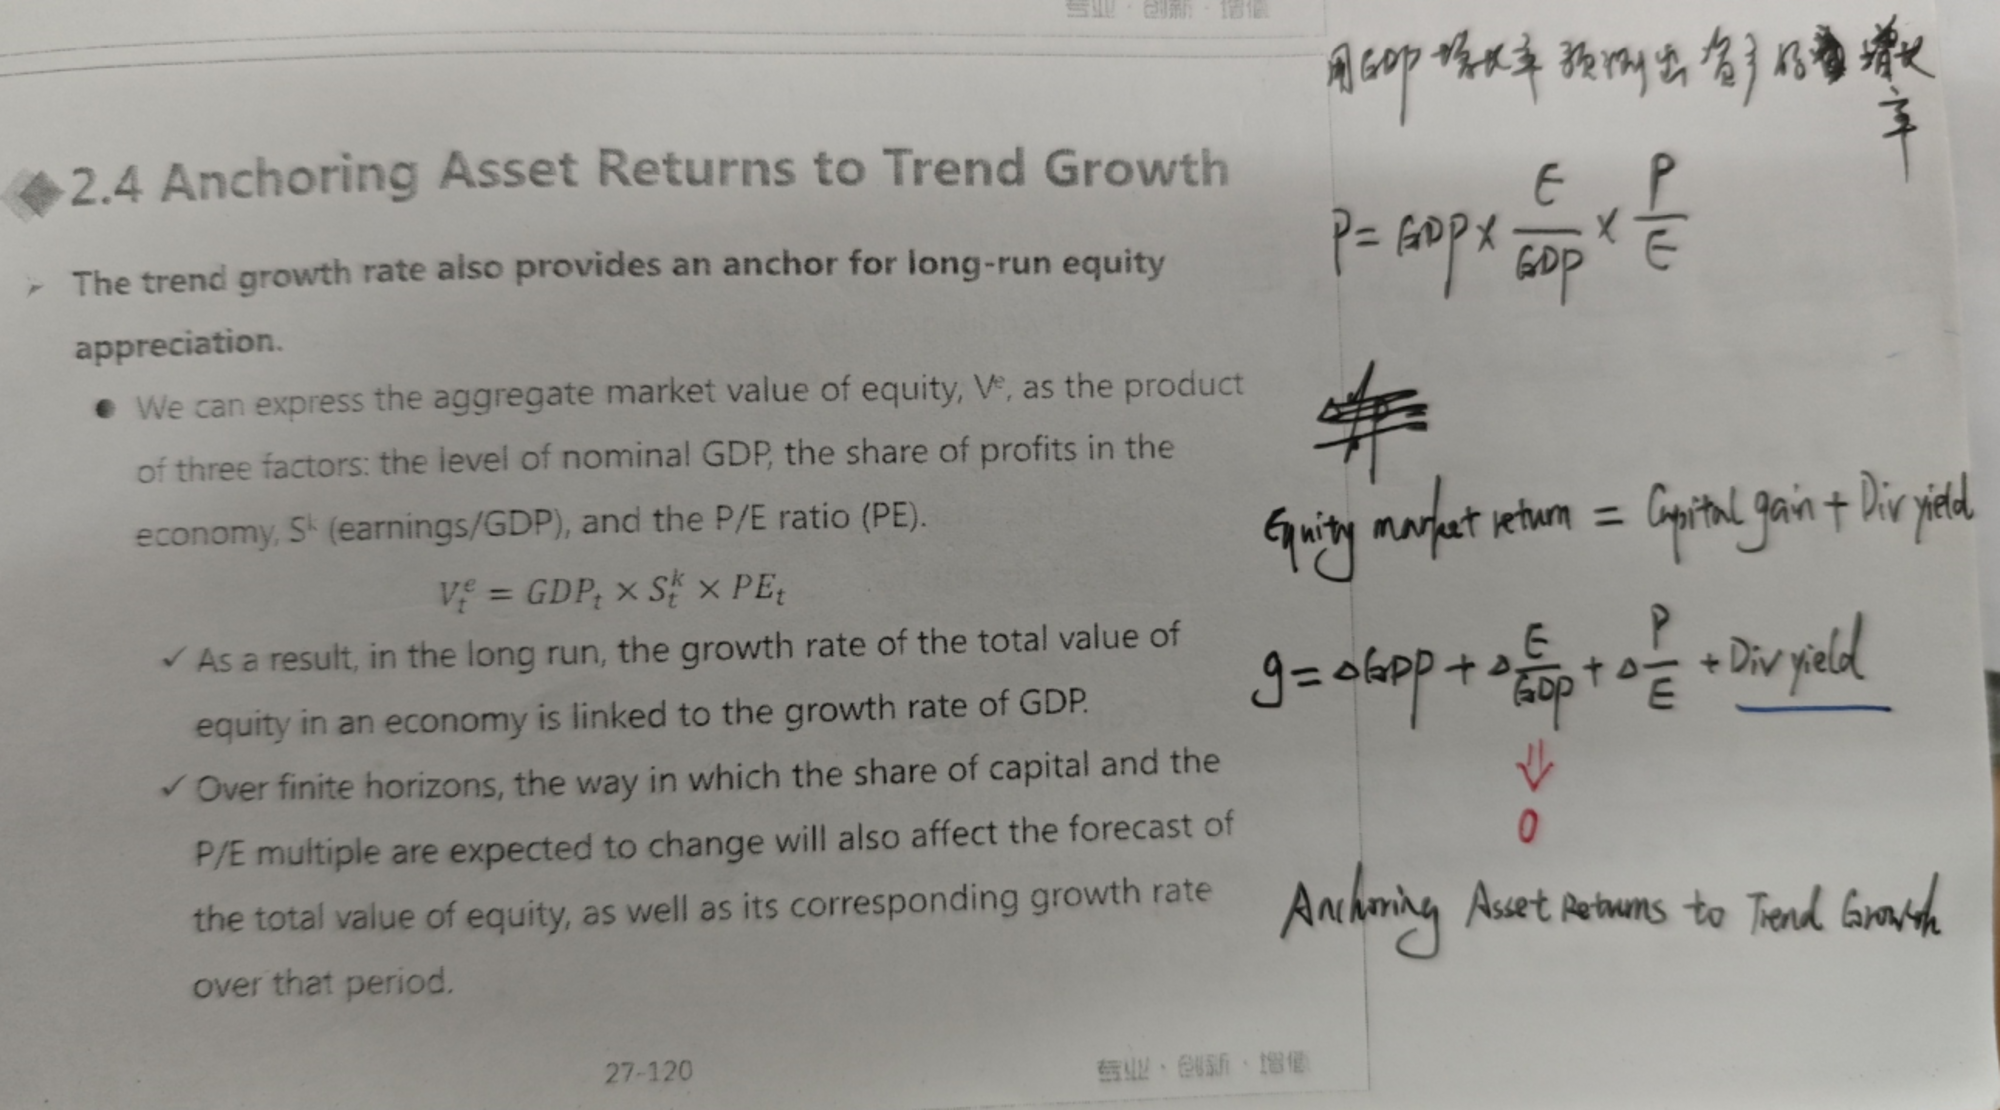 专业 · 创新 · 增值
2.4 Anchoring Asset Returns to Trend Growth
The trend growth rate also provides an anchor for long-run equity
appreciation.
We can express the aggregate market value of equity, Vᵉ, as the product
of three factors: the level of nominal GDP, the share of profits in the
economy, Sᵏ (earnings/GDP), and the P/E ratio (PE).
Vₜᵉ = GDPₜ × Sₜᵏ × PEₜ
✓ As a result, in the long run, the growth rate of the total value of
equity in an economy is linked to the growth rate of GDP.
✓ Over finite horizons, the way in which the share of capital and the
P/E multiple are expected to change will also affect the forecast of
the total value of equity, as well as its corresponding growth rate
over that period.
27-120
专业 · 创新 · 增值
用GDP增长率预测出资产的增长
率
P = GDP × E/GDP × P/E
Equity market return = Capital gain + Div yield
g = ΔGDP + Δ E/GDP + Δ P/E + Div yield
⇓
0
Anchoring Asset Returns to Trend Growth